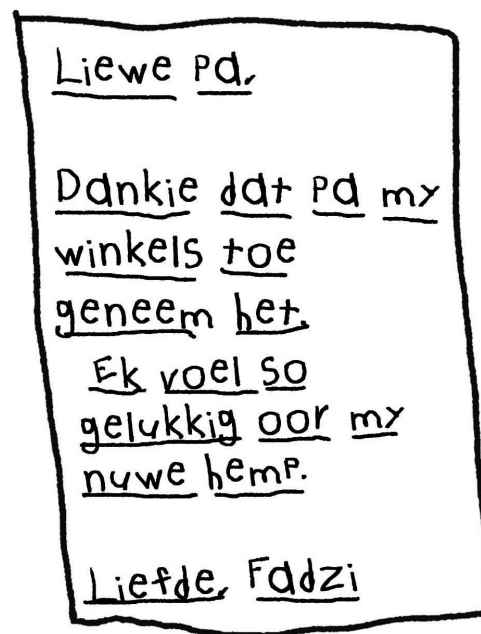 Liewe Pa,
Dankie dat Pa my
winkels toe
geneem het.
Ek voel so
gelukkig oor my
nuwe hemp.
Liefde, Fadzi